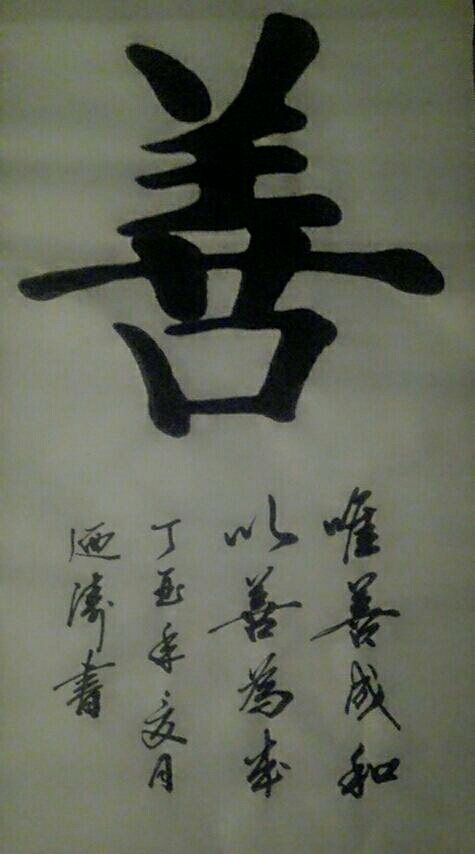 善
唯善成和
以善為本
丁酉年亥月
迺濤書